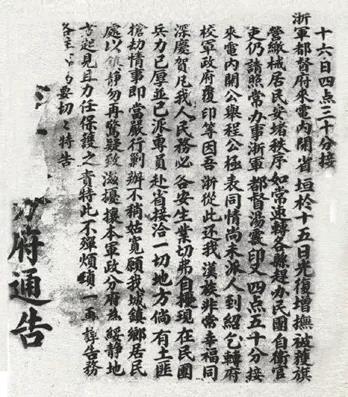 十六日四点三十分接
浙军都督府來電内開省垣於十五日光復增撫被獲旗
營繳械居民安堵秩序如常速轉各縣趕办民團自衛官
吏仍請照常办事浙軍都督湯震印又四点五十分接
來電内開公舉程公極表同情尚未派人到紹乞轉府
校軍政府覆印等因吾浙從此还我漢族非常幸福同
深慶賀凡我人民務必各安生業切弗自擾現在民團
兵力已厚並已派專員赴省接洽一切地方倘有土匪
搶劫情事即當嚴行剿辦不稍姑寬願我城鎮鄉居民
處以鎮静勿再驚疑致滋擾攘本軍政分府為綏静地
方起見自力任保護之責特此不殫煩瑣一再諄告務
各至切要切々特告
分府通告